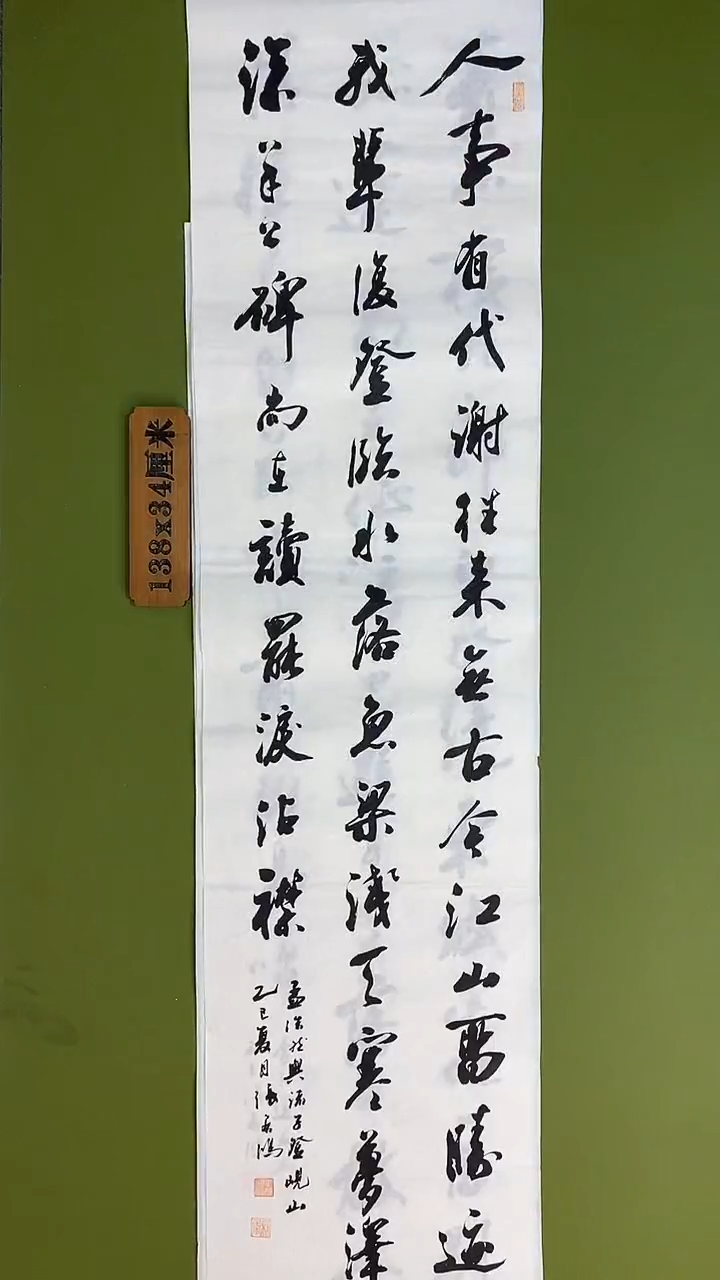 人事有代謝往来無古今江山留勝迹
我輩復登臨水落魚梁淺天寒夢澤
深羊公碑尚在讀罷淚沾襟
孟浩然與諸子登峴山
乙巳夏月張
138x34厘米